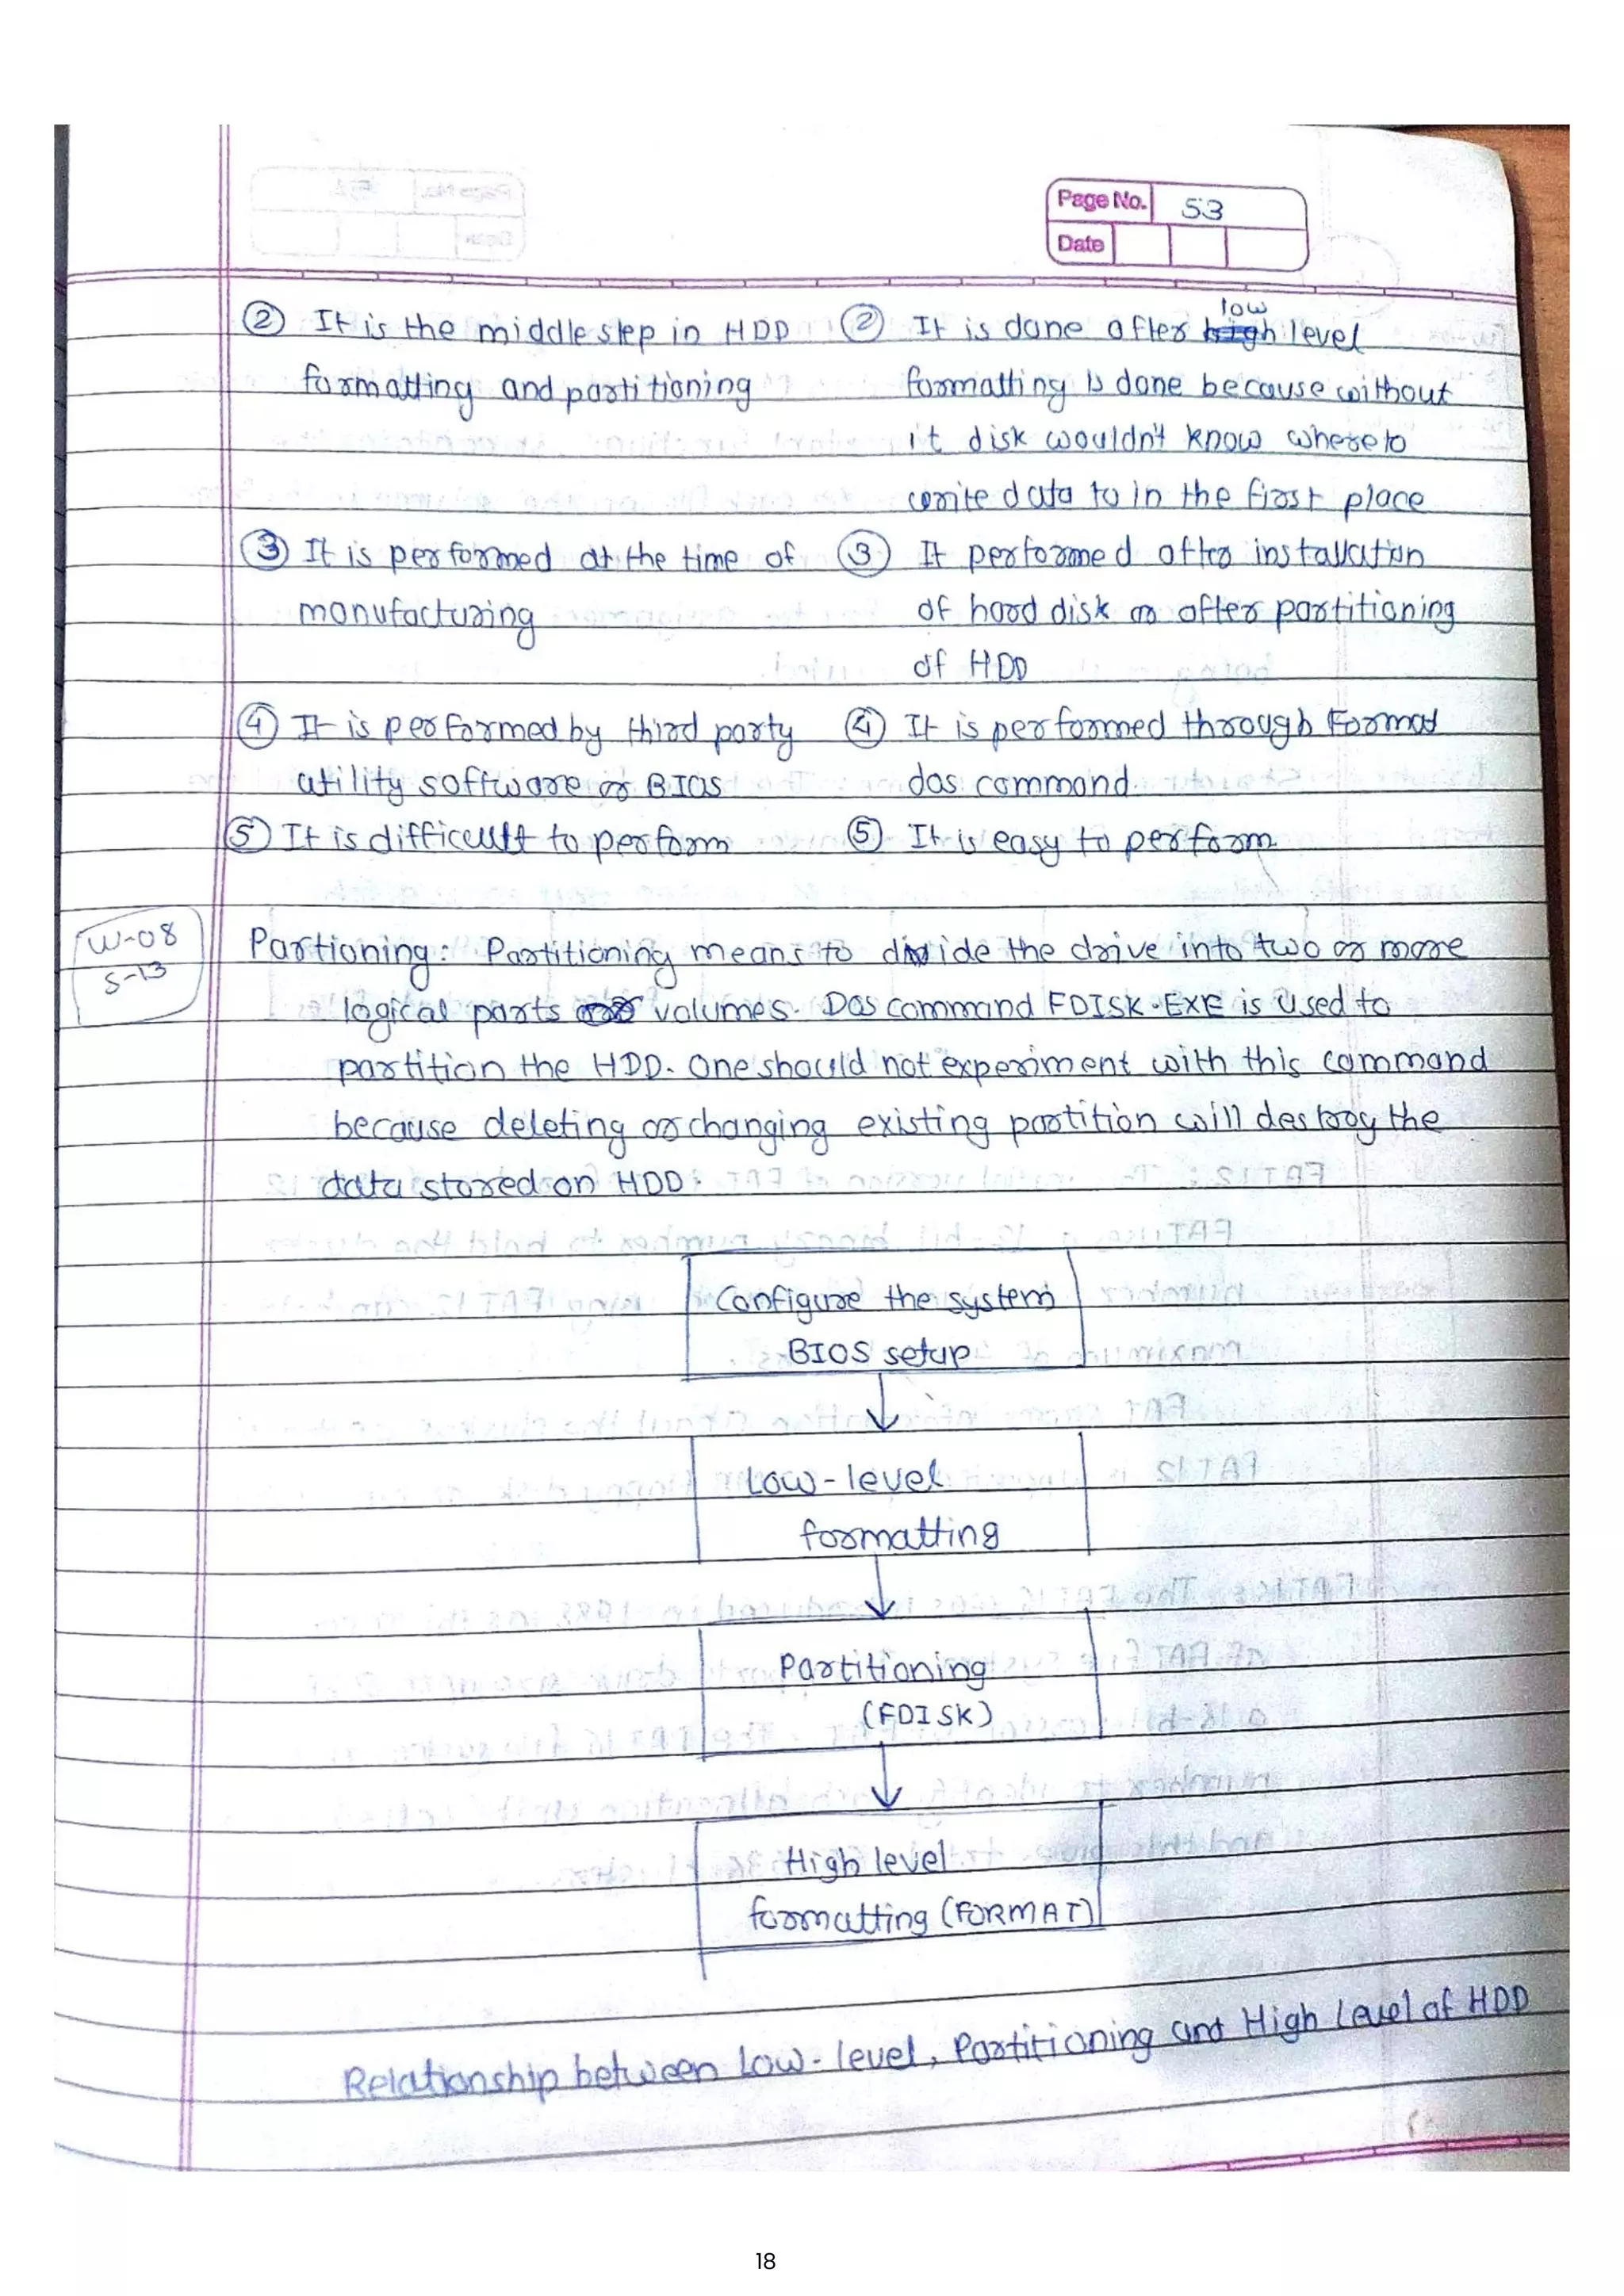 Page No. 53
Date
② It is the middle step in HDD
formatting and partitioning
③ It is performed at the time of
manufacturing
④ It is performed by third party
utility software or BIOS
⑤ It is difficult to perform
② It is done after low level
formatting is done because without
it disk wouldn't know where to
write data to in the first place
③ It performed after installation
of hard disk or after partitioning
of HDD
④ It is performed through Format
dos command.
⑤ It is easy to perform
W-08
S-13
Partioning : Partitioning means to divide the drive into two or more
logical parts or volumes. Dos command FDISK.EXE is used to
partition the HDD. One should not experiment with this command
because deleting or changing existing partition will destroy the
data stored on HDD.
Configure the system
BIOS setup
Low-level
formatting
Partitioning
(FDISK)
High level
formatting (FORMAT)
Relationship between Low-level, Partitioning and High Level of HDD
18